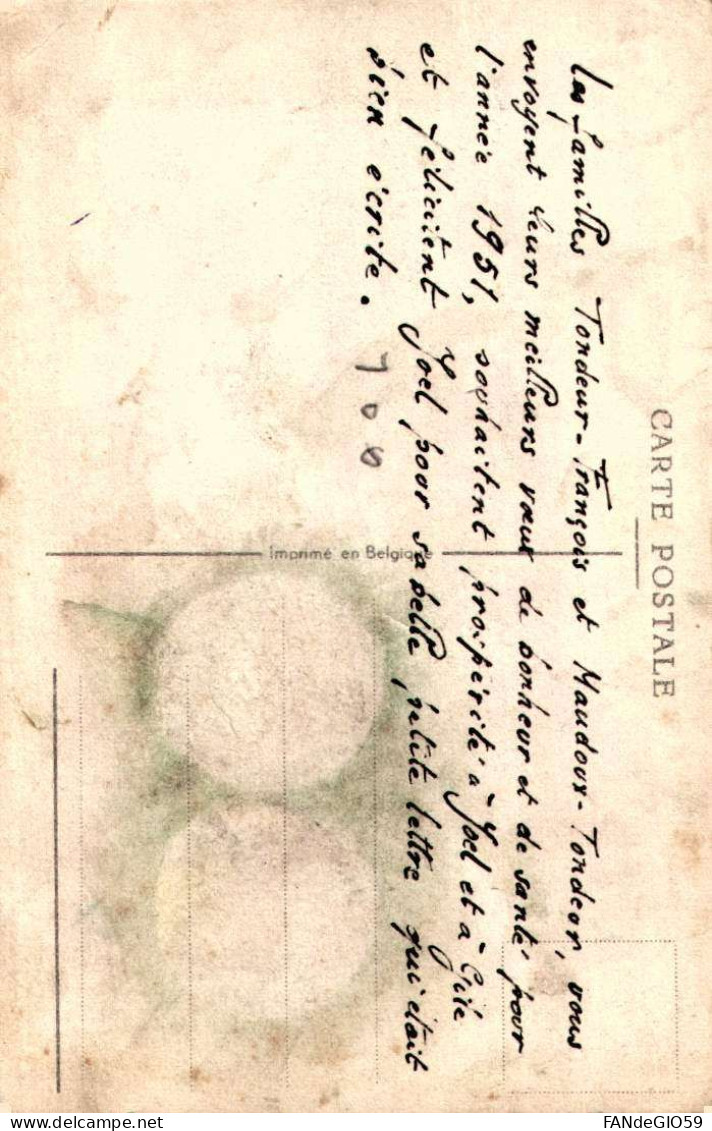 CARTE POSTALE
Les familles Tondeur-François et Maudoux-Tondeur, vous
envoyent leurs meilleurs vœux de bonheur et de santé pour
l'année 1951, souhaitent prospérité à Joel et à Gile
et félicitent Joel pour sa belle petite lettre qui était
bien écrite.
700
Imprimé en Belgique
delcampe.net
FANdeGIO59